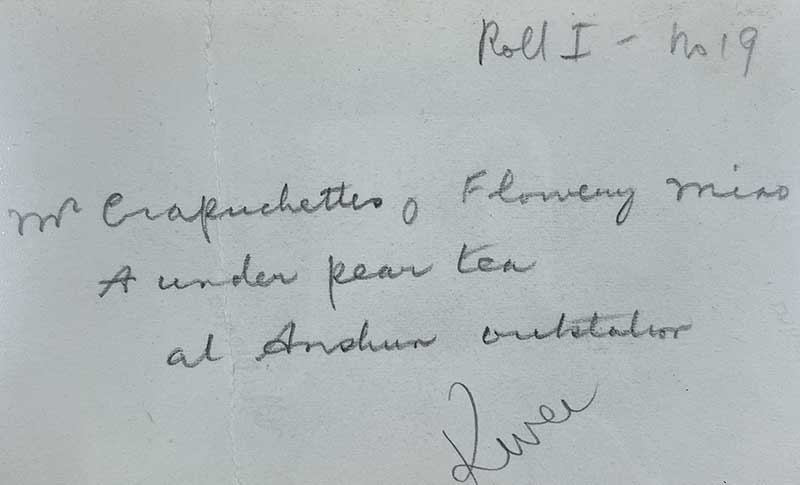 Roll I - No 19
Mr Crapuchettes, Flowery Miao
A under pear tea
at Anshun outstation
River